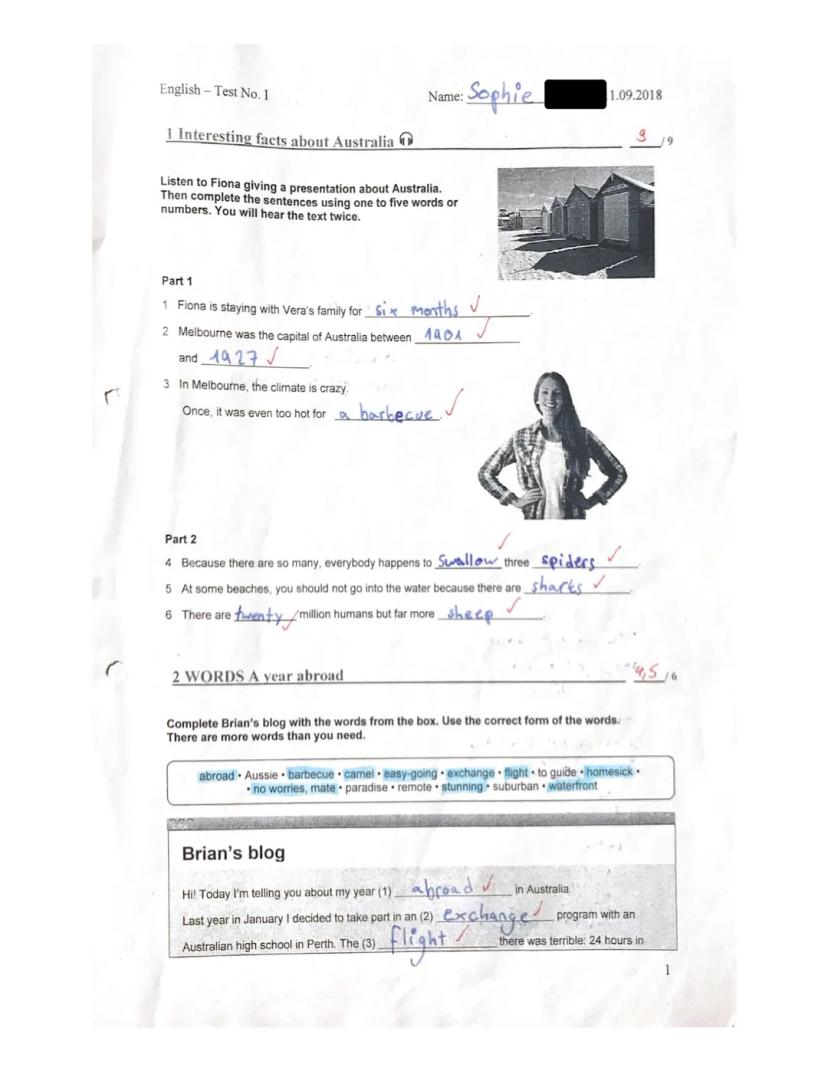 English – Test No. I Name: Sophie 1.09.2018
1 Interesting facts about Australia 9 /9
Listen to Fiona giving a presentation about Australia.
Then complete the sentences using one to five words or
numbers. You will hear the text twice.
Part 1
1 Fiona is staying with Vera's family for six months.
2 Melbourne was the capital of Australia between 1901
and 1927.
3 In Melbourne, the climate is crazy.
Once, it was even too hot for a barbecue.
Part 2
4 Because there are so many, everybody happens to swallow three spiders.
5 At some beaches, you should not go into the water because there are sharks.
6 There are twenty million humans but far more sheep.
2 WORDS A year abroad 4,5 /6
Complete Brian's blog with the words from the box. Use the correct form of the words.
There are more words than you need.
abroad • Aussie • barbecue • camel • easy-going • exchange • flight • to guide • homesick •
• no worries, mate • paradise • remote • stunning • suburban • waterfront
Brian's blog
Hi! Today I'm telling you about my year (1) abroad in Australia.
Last year in January I decided to take part in an (2) exchange program with an
Australian high school in Perth. The (3) flight there was terrible: 24 hours in
1